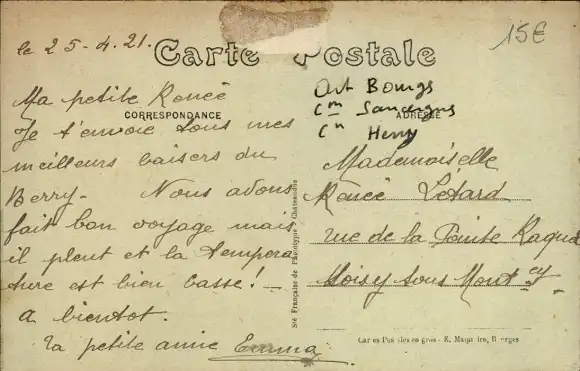 le 25-4.21.
15€
Carte Postale
CORRESPONDANCE
ADRESSE
Ma petite Renée
Je t'envoie tous mes
meilleurs baisers du
Berry. Nous avons
fait bon voyage mais
il pleut et la tempera
ture est bien basse! -
a bientot.
ta petite amie Emma
Art Bourgs
Cm Sancergues
Cn Henry
Mademoiselle
Renée Létard
rue de la Pointe Raquet
Moisy sous Montcy
Sté Française de Phototypie - Châteaudun
Cartes Postales en gros - E. Maquaire, Bourges